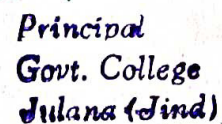 Principal
Govt. College
Julana (Jind)